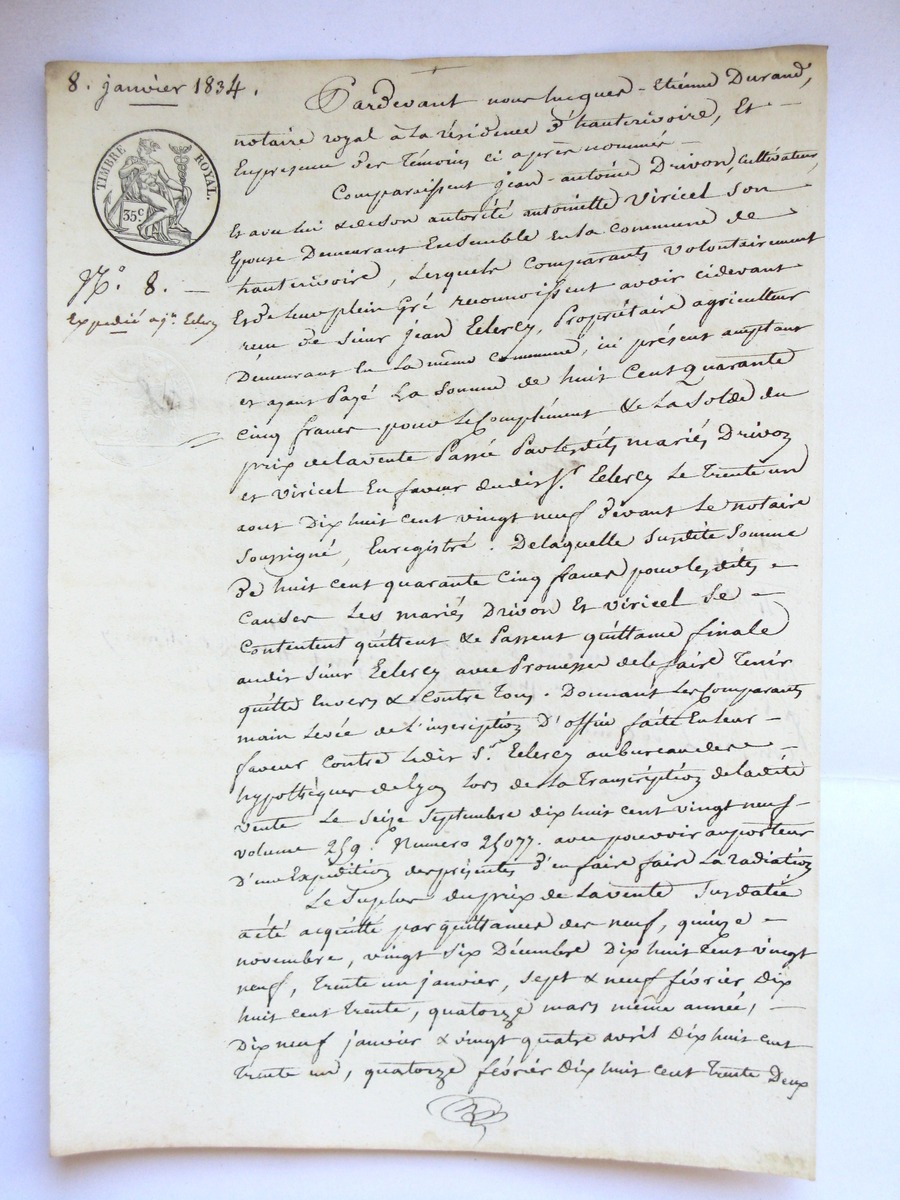 8. janvier 1834.
TIMBRE ROYAL.
35c
N.° 8. —
Expédié a jn. Eclercy
Pardevant nous hugues-Etienne Durand,
notaire royal à la résidence d'hauterivoire, Et —
En présence des Témoins ci après nommés —
Comparaissent jean-antoine Drivon, cultivateur,
Et avec lui & de son autorité antoinette Viricel son
Epouse Demeurant Ensemble En la commune de
hauterivoire, Lesquels comparants volontairement
Et de leur plein Gré reconnoissent avoir cidevant
reçu de sieur jean Eclercy, Propriétaire agriculteur
Demeurant En La même commune, ici présent acceptant
et ayant Payé La somme de huit Cent quarante
cinq francs pour Le Complément & La Solde du
prix de la vente Passée Par lesdits mariés Drivon
et Viricel En faveur dudit Sr. Eclercy Le Trente un
aout Dix huit cent vingt neuf devant Le notaire
soussigné, Enregistré. De laquelle susdite Somme
De huit cent quarante cinq francs pour lesdites
causes Les mariés Drivon Et Viricel se —
Contentent quittent & Passent quittance finale
audit sieur Eclercy avec Promesse de le faire Tenir
quitte Envers & Contre Tous. Donnant Les Comparants
main Levée de L'inscription D'office faite En leur —
faveur Contre Ledit Sr. Eclercy au bureau des —
hypothèques de Lyon Lors de La Transcription de ladite
vente Le seize Septembre dix huit cent vingt neuf —
volume 259. Numero 25077. avec pouvoir au porteur
D'une Expédition des présentes d'en faire faire La radiation
Le surplus du prix de La vente susdatée
a été acquitté par quittances des neuf, quinze —
novembre, vingt six Décembre Dix huit Cent vingt
neuf, Trente un janvier, sept & neuf février Dix
huit cent trente, quatorze mars même année, —
Dix neuf janvier & vingt quatre avril Dix huit cent
Trente un, quatorze février Dix huit cent Trente Deux